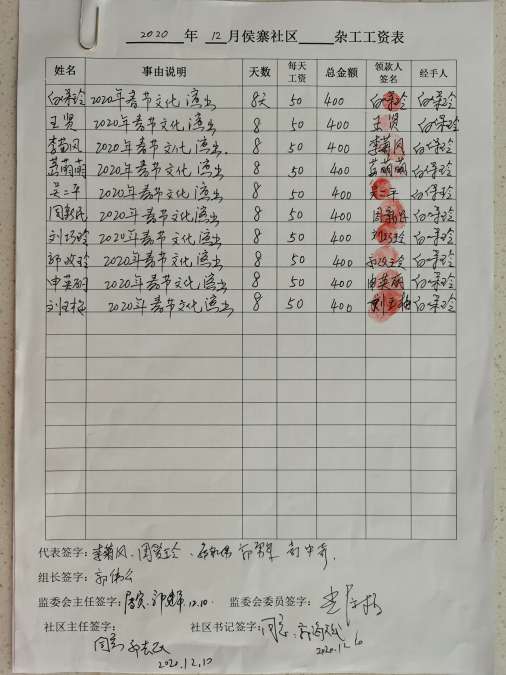 2020 年 12 月侯寨社区 杂工工资表
姓名 事由说明 天数 每天工资 总金额 领款人签名 经手人
白保玲 2020年春节文化演出 8天 50 400 白保玲 白保玲
王贤 2020年春节文化演出 8 50 400 王贤 白保玲
李菊风 2020年春节文化演出 8 50 400 李菊风 白保玲
萌萌 2020年春节文化演出 8 50 400 萌萌 白保玲
吴二平 2020年春节文化演出 8 50 400 吴二平 白保玲
周新民 2020年春节文化演出 8 50 400 周新民 白保玲
刘巧玲 2020年春节文化演出 8 50 400 刘巧玲 白保玲
郭改玲 2020年春节文化演出 8 50 400 白保玲
申英丽 2020年春节文化演出 8 50 400 申英丽 白保玲
刘玉梅 2020年春节文化演出 8 50 400 刘玉梅 白保玲
代表签字: 李菊风、
组长签字: 郭伟
监委会主任签字: 12.10 监委会委员签字:
社区主任签字: 社区书记签字:
2020.12.10 2020.12.6